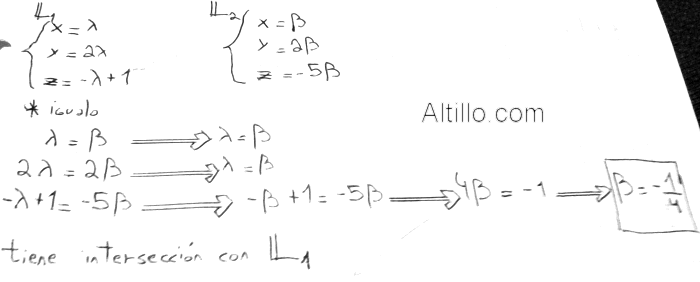 𝕃₁ { x = λ
y = 2λ
z = -λ + 1
𝕃₂ { x = β
y = 2β
z = -5β
* igualo
Altillo.com
λ = β ⟹ λ = β
2λ = 2β ⟹ λ = β
-λ + 1 = -5β ⟹ -β + 1 = -5β ⟹ 4β = -1 ⟹ β = -1/4
tiene intersección con 𝕃₁